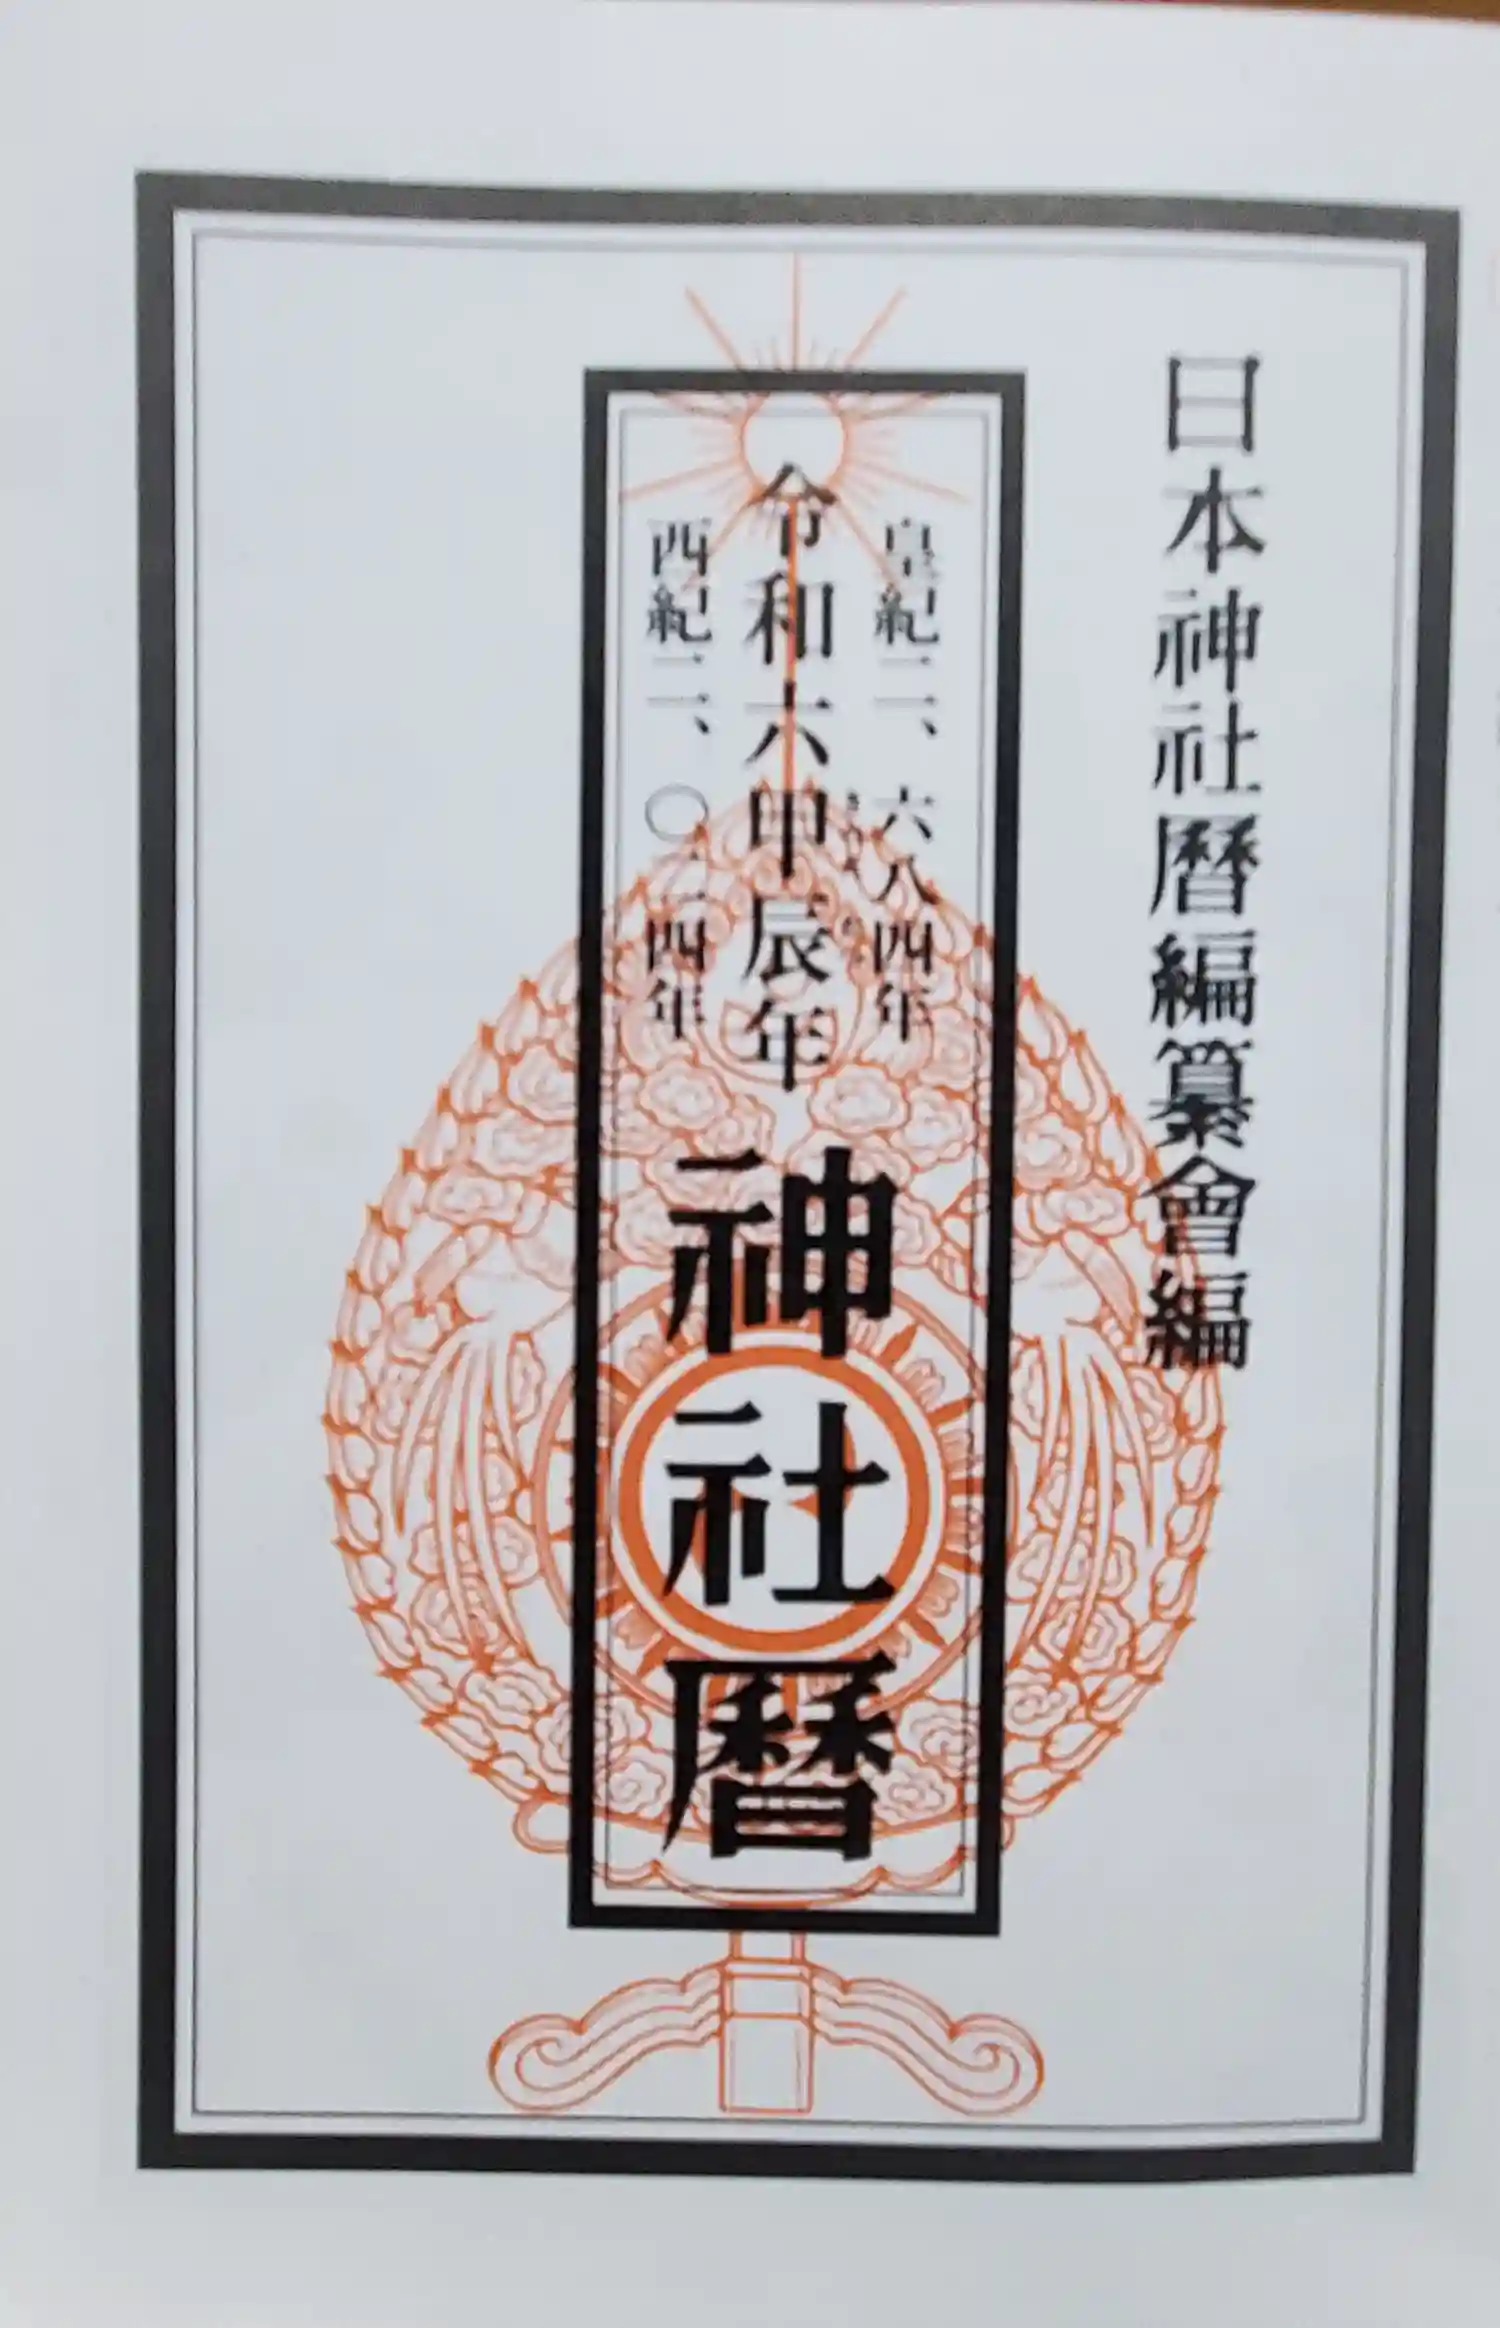 日本神社暦編纂會編
皇紀二、六八四年
令和六甲辰年
西紀二、〇二四年
神社暦